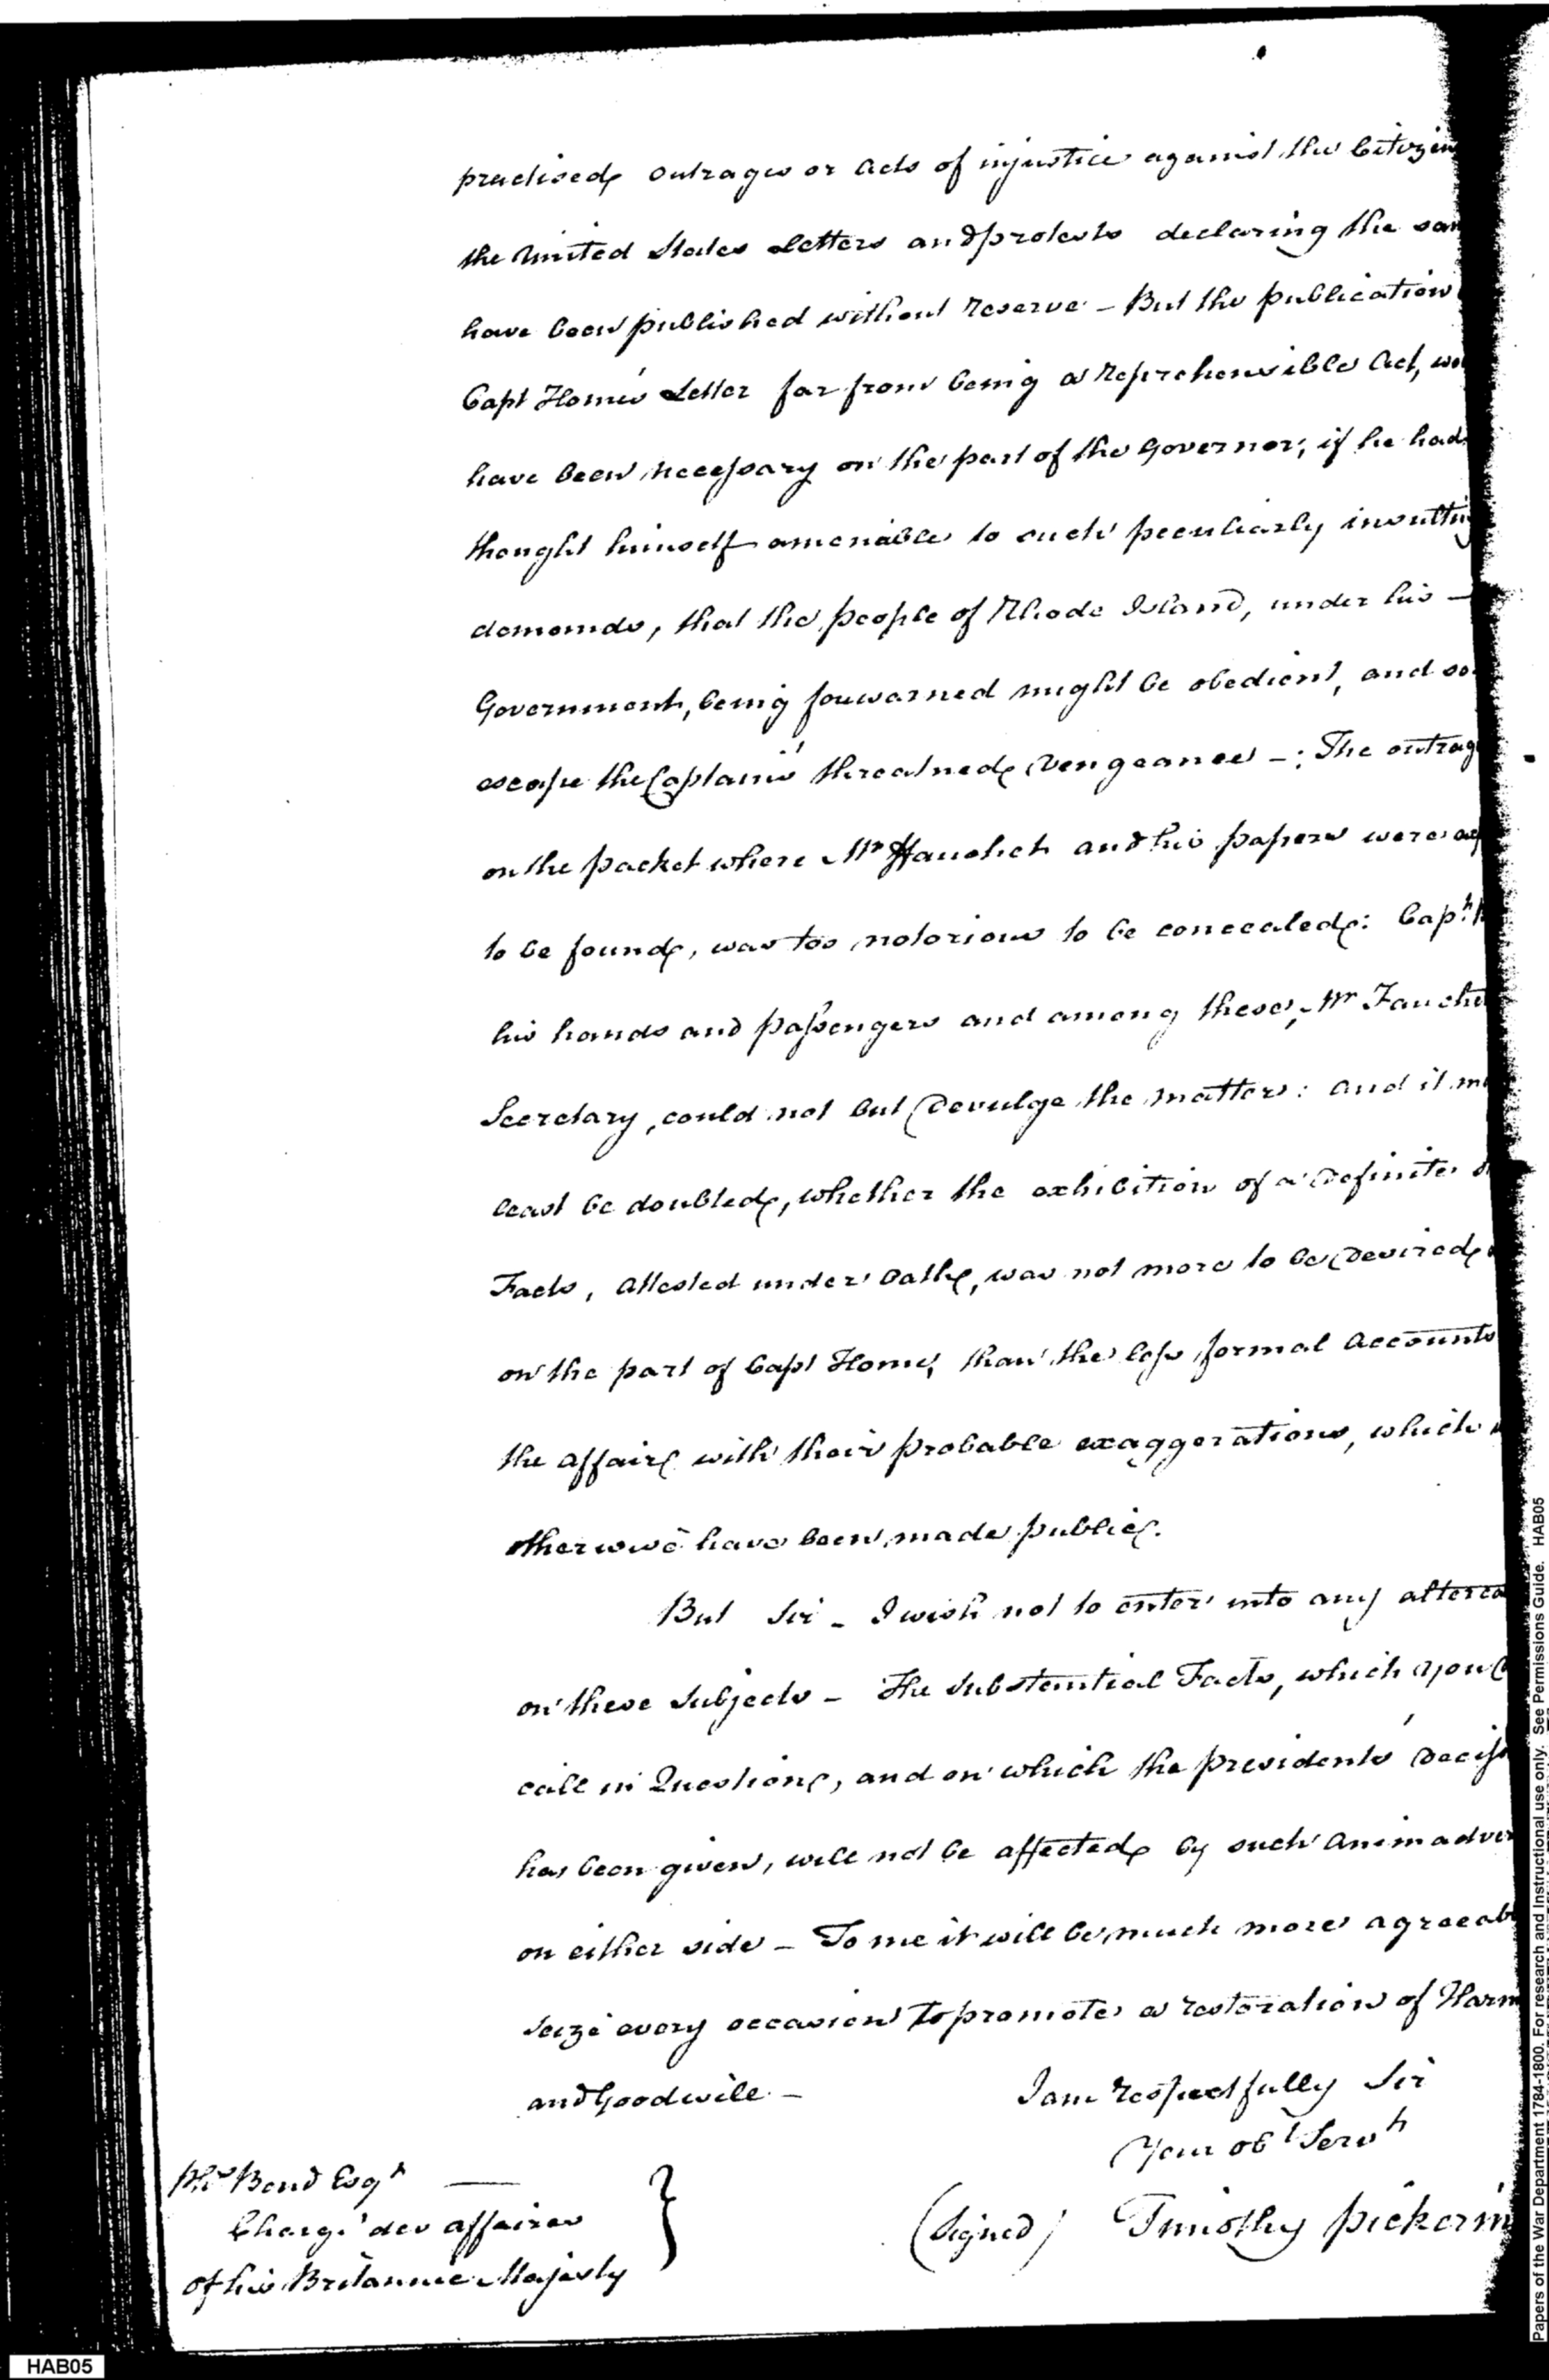 practised outrages or acts of injustice against the Citizen
the United States Letters and protests declaring the sam
have been published without reserve – But the publication
Capt Home's Letter far from being a reprehensible Act, wo
have been necessary on the part of the Governor; if he had
thought himself amenable to such peculiarly insultin
demands, that the people of Rhode Island, under his —
Government, being forewarned might be obedient, and so
escape the Captain's threatned Vengeance –: The outrag
on the packet where Mr Fauchet and his papers were
to be found, was too notorious to be concealed: Capt.
his hands and passengers and among these, Mr Fauche
Secretary, could not but Devulge the matter: and it m
least be doubted, whether the exhibition of a Definite
Facts, attested under Oath, was not more to be Desired
on the part of Capt Home, than the less formal Accounts
the affair with their probable exaggerations, which
otherwise have been made public.
But Sir – I wish not to enter into any alterca
on these Subjects – The Substantial Facts, which you
call in Question, and on which the presidents' Decis
has been given, will not be affected by such animadver
on either side – To me it will be much more agreeab
seize every occasion to promote a restoration of Harm
and Goodwill –
I am respectfully Sir
Your obt Servt
(Signed) Timothy pickerin
Phs Bond Esqr —
Chargé des affaires
of his Britannic Majesty
HAB05
Papers of the War Department 1784-1800. For research and Instructional use only. See Permissions Guide. HAB05